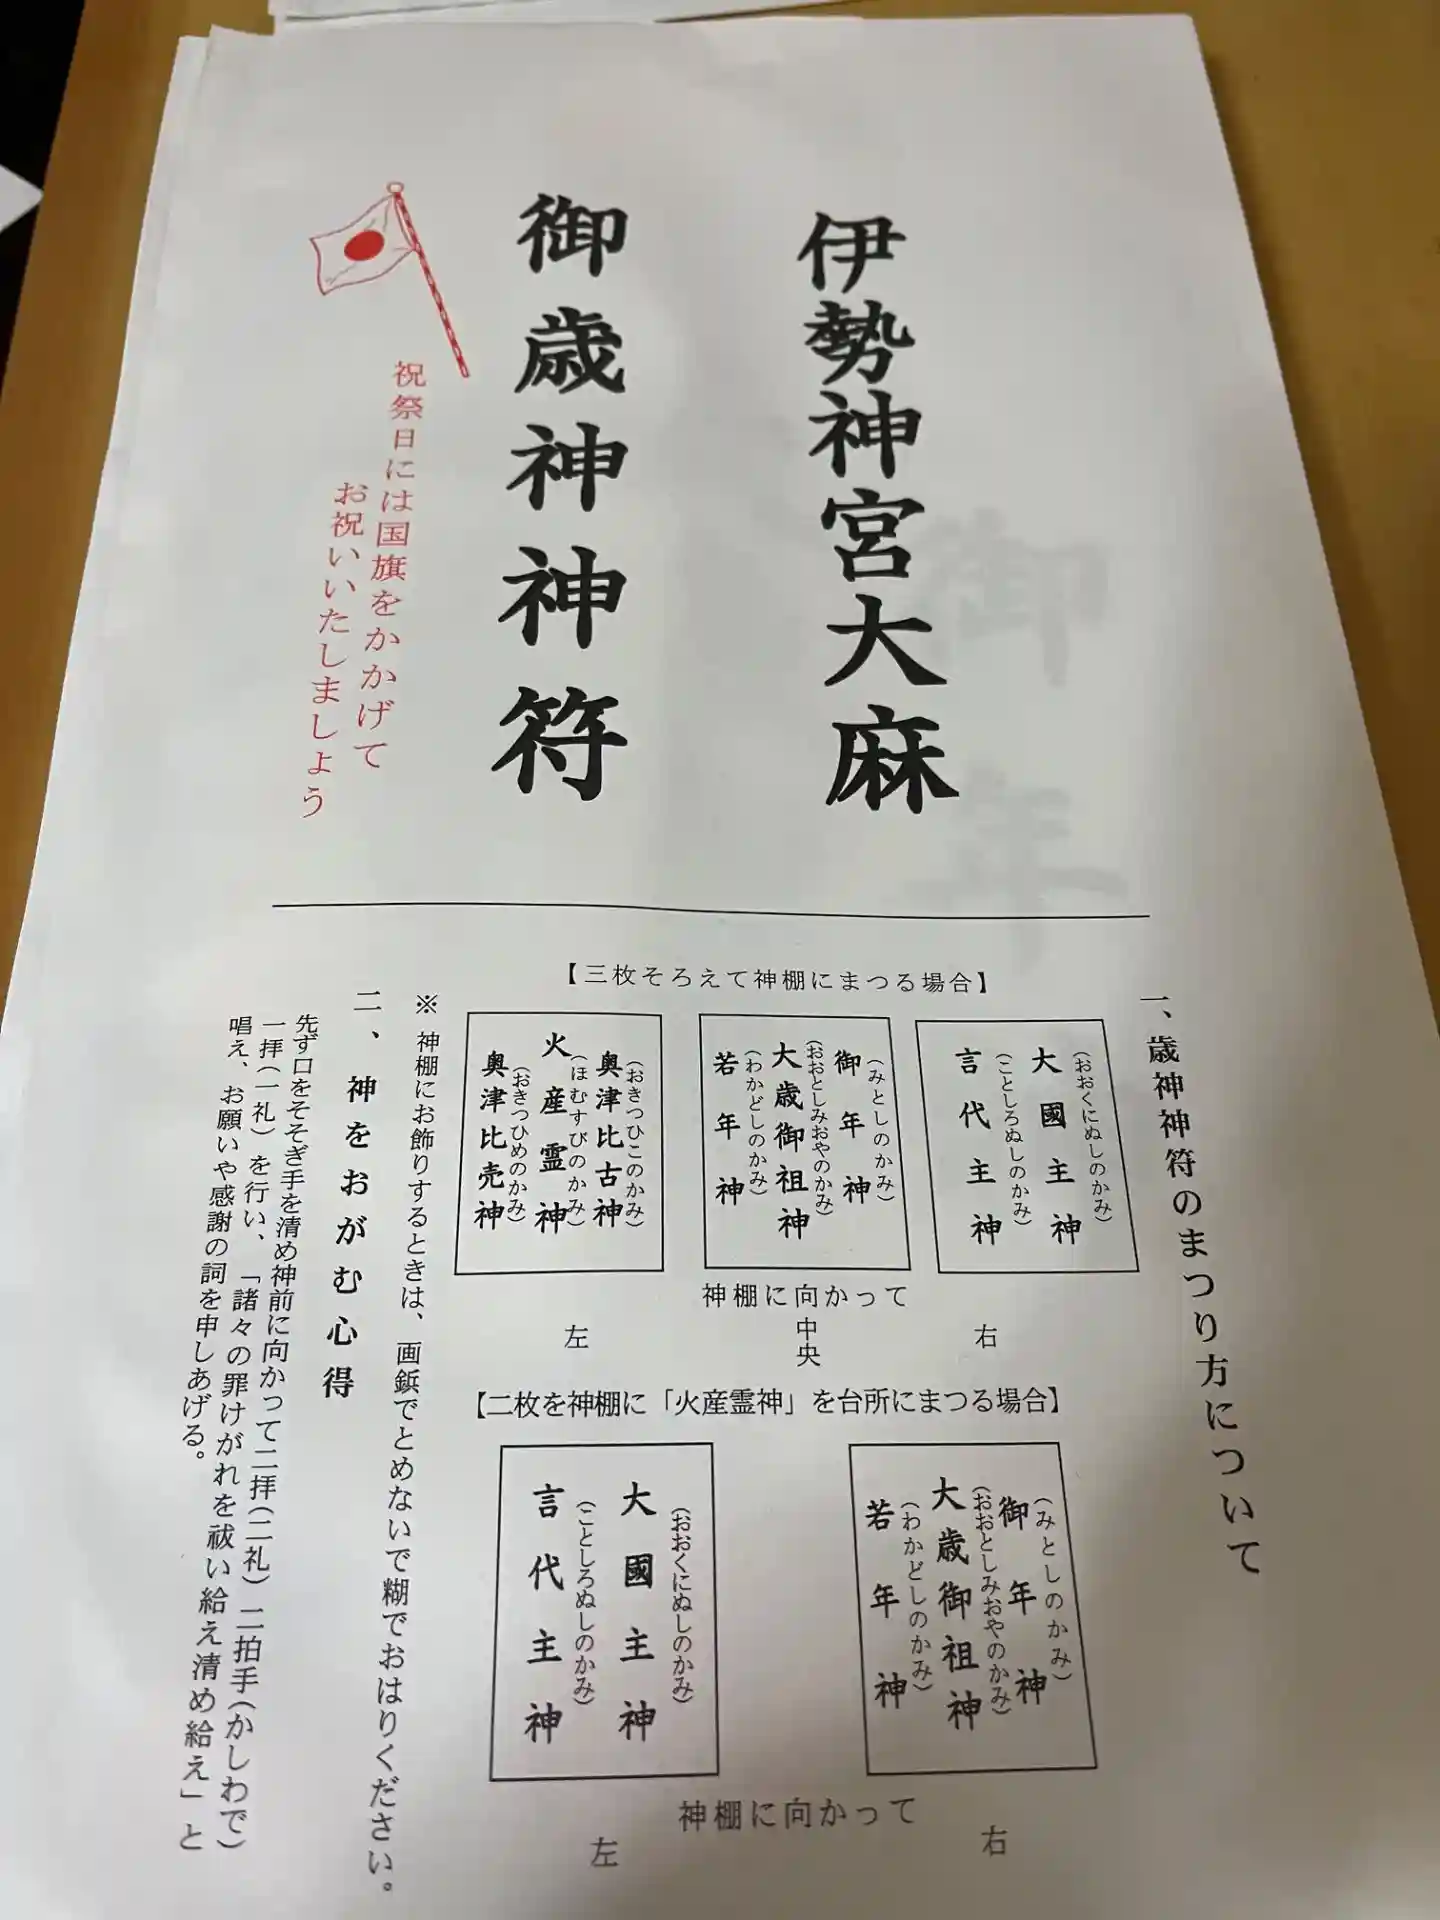 伊勢神宮大麻
御歳神神符
祝祭日には国旗をかかげて
お祝いいたしましょう
一、歳神神符のまつり方について
【三枚そろえて神棚にまつる場合】
大國主神(おおくにぬしのかみ)
言代主神(ことしろぬしのかみ)
御年神(みとしのかみ)
大歳御祖神(おおとしみおやのかみ)
若年神(わかどしのかみ)
奥津比古神(おきつひこのかみ)
火産霊神(ほむすびのかみ)
奥津比売神(おきつひめのかみ)
神棚に向かって
右
中央
左
【二枚を神棚に「火産霊神」を台所にまつる場合】
御年神(みとしのかみ)
大歳御祖神(おおとしみおやのかみ)
若年神(わかどしのかみ)
大國主神(おおくにぬしのかみ)
言代主神(ことしろぬしのかみ)
神棚に向かって
右
左
※神棚にお飾りするときは、画鋲でとめないで糊でおはりください。
二、神をおがむ心得
先ず口をそそぎ手を清め神前に向かって二拝(二礼)二拍手(かしわで)
一拝(一礼)を行い、「諸々の罪けがれを祓い給え清め給え」と
唱え、お願いや感謝の詞を申しあげる。